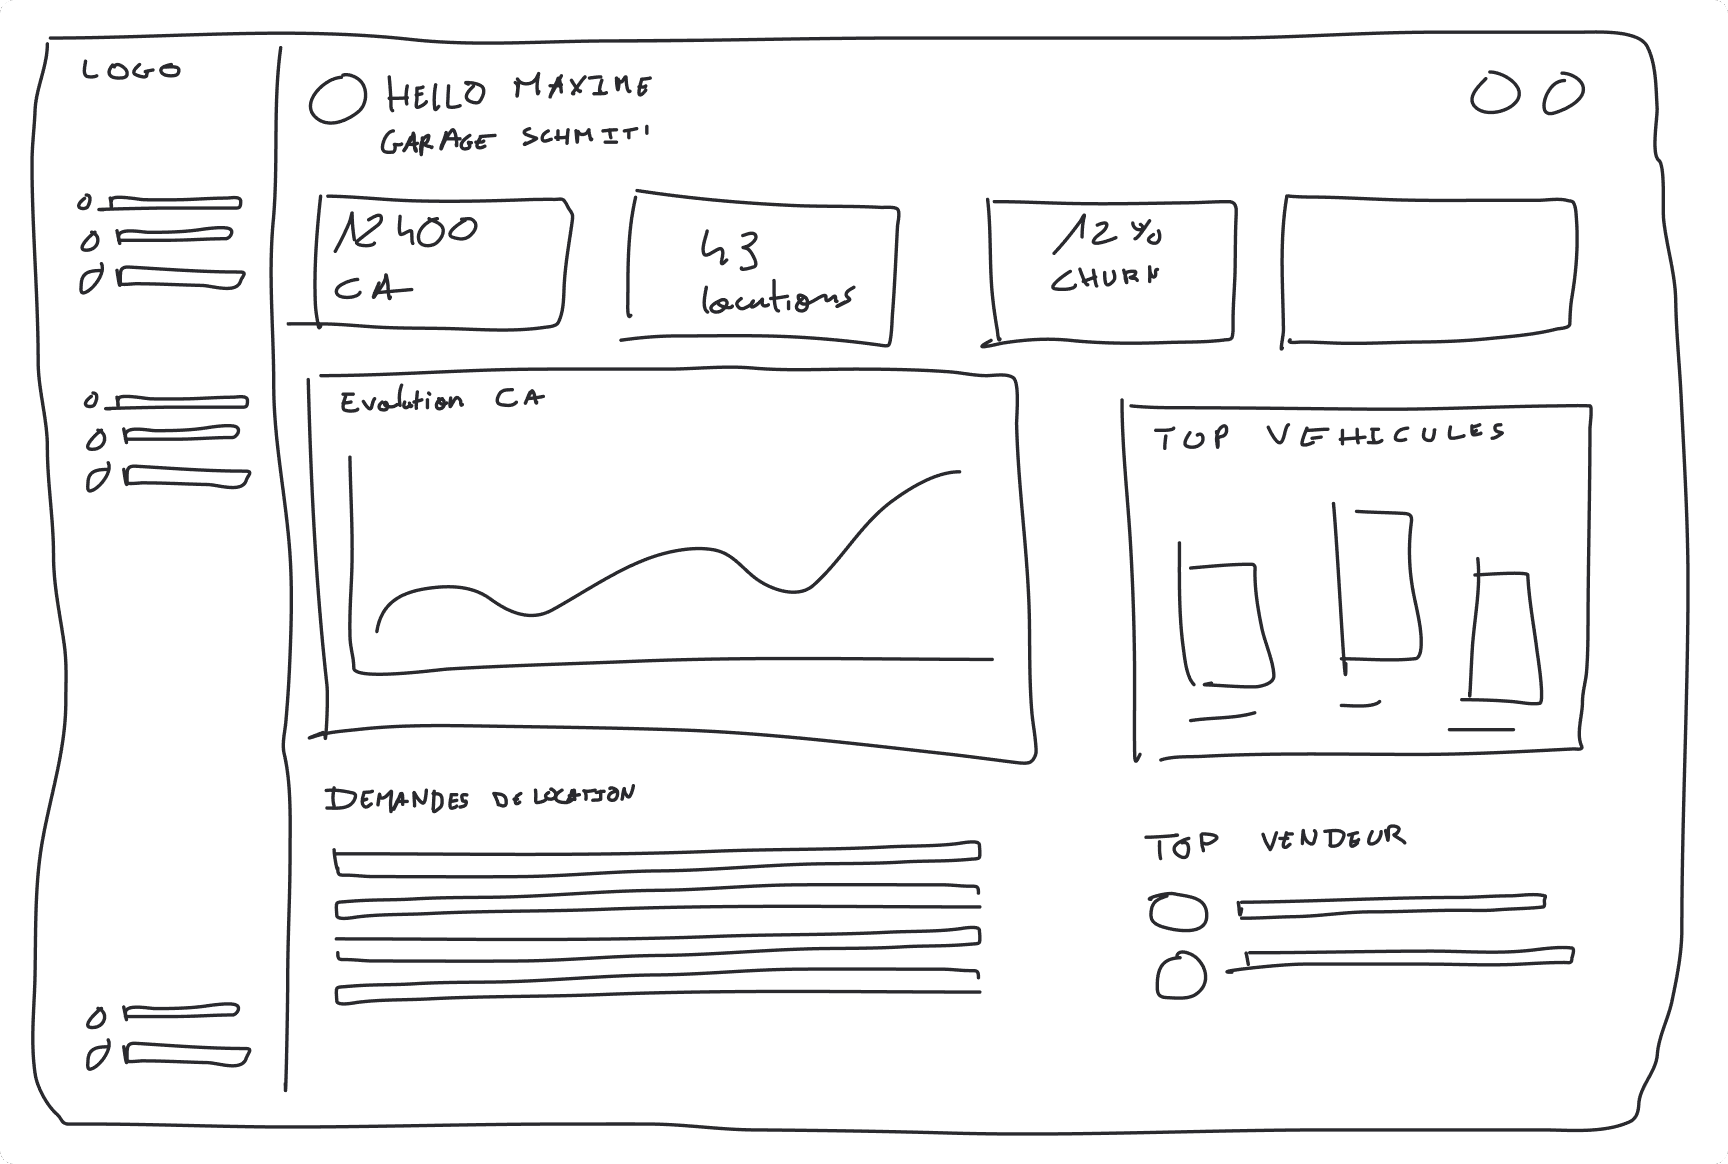 LOGO
HELLO MAXIME
GARAGE SCHMIT'
12 400
CA
43
locations
12%
CHURN
Evolution CA
TOP VEHICULES
DEMANDES DE LOCATION
TOP VENDEUR